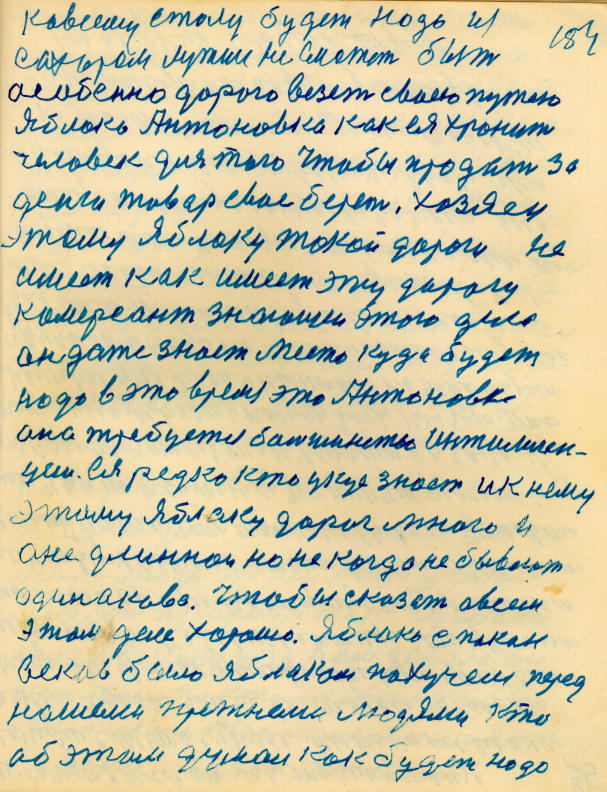 ковсему столу будет надо и
184
сахором лутши не сможет быт
особенно дорого везет своею путею
Яблоко Антоновка как ея хронит
человек для того чтобы продат за
денги товар свое берет. Хозяен
этому яблоку токой дороги не
имеет как имеет эту дорогу
комерсант знающеи этого дела
он даже знает место куда будет
надо в это время это Антоновка
она требуется
цеи. Ея редко кто укуе знает и к нему
этому яблоку дорог много и
оне длиннои но не когда не бывают
одинаково. Чтобы сказат овсем
этом деле хорошо. Яблоко с покон
веков было яблаком пахучем перед
нашеми прежнеми людями кто
об этом думал как будет надо